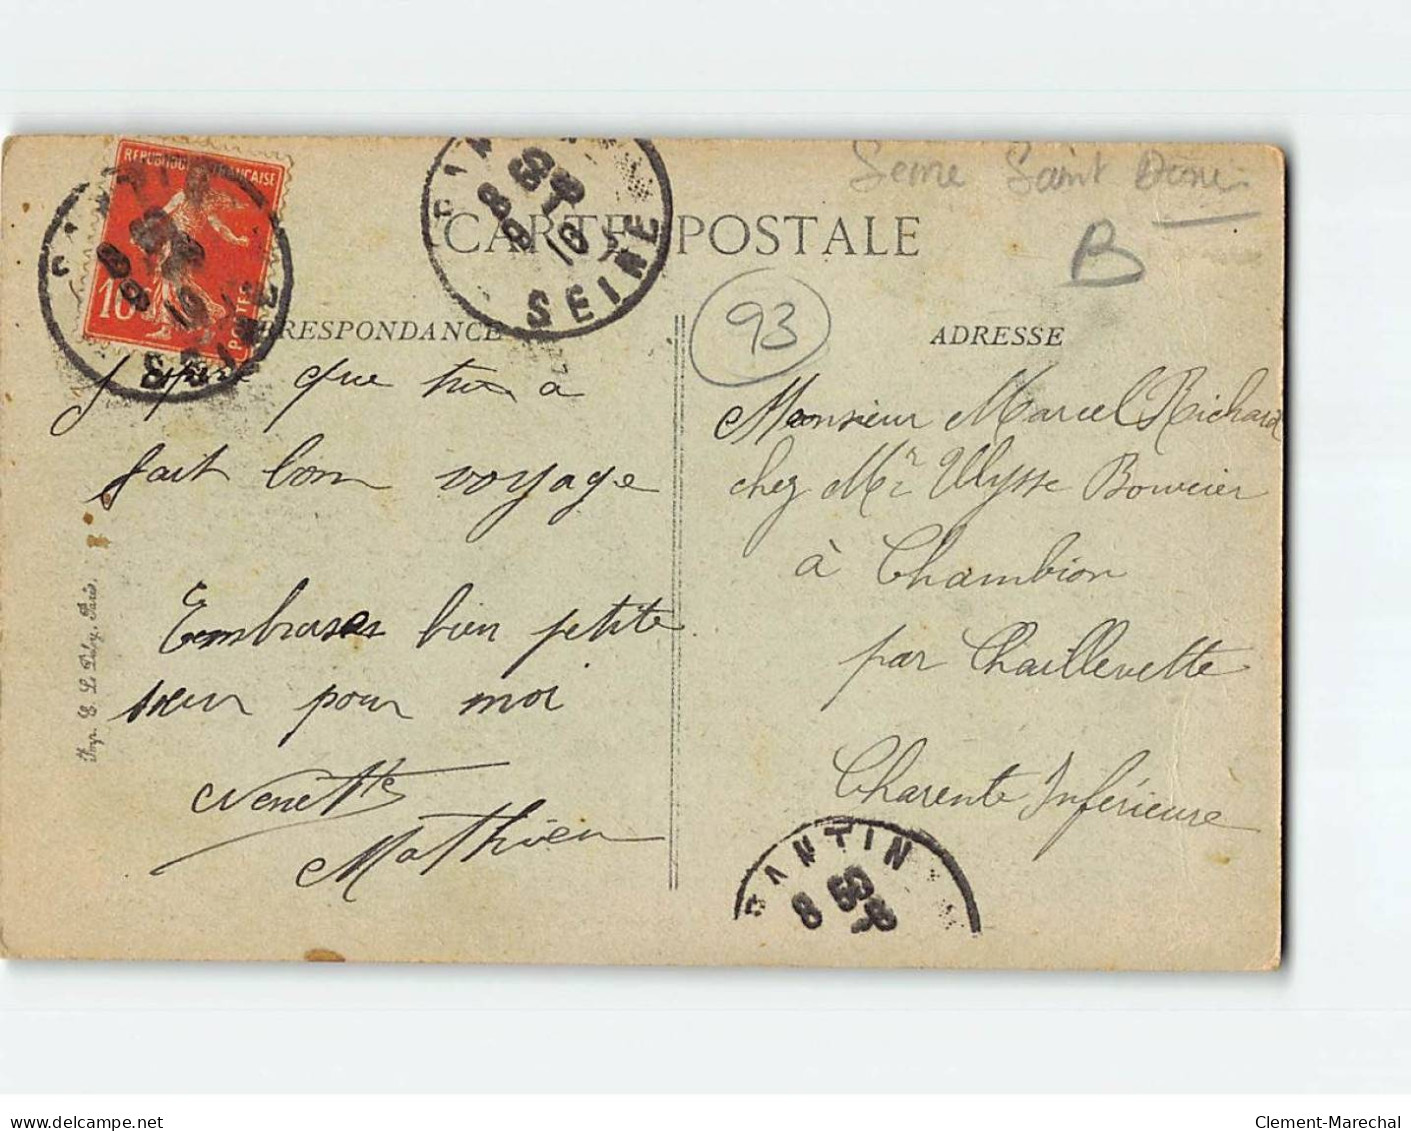 RÉPUBLIQUE FRANÇAISE
10
POSTES
SEINE
8 50
SEINE
Seine Saint Denis
B
CARTE POSTALE
93
CORRESPONDANCE
ADRESSE
J'espère que tu a
fait bon voyage
Embrasses bien petite
sœur pour moi
Nenette
Mathieu
Imp. E. Le Deley, Paris.
Monsieur Marcel Richard
chez Mr Ulysse
à Chambion
par Chaillevette
Charente Inférieure
PANTIN
8 50
delcampe.net
Clement-Marechal